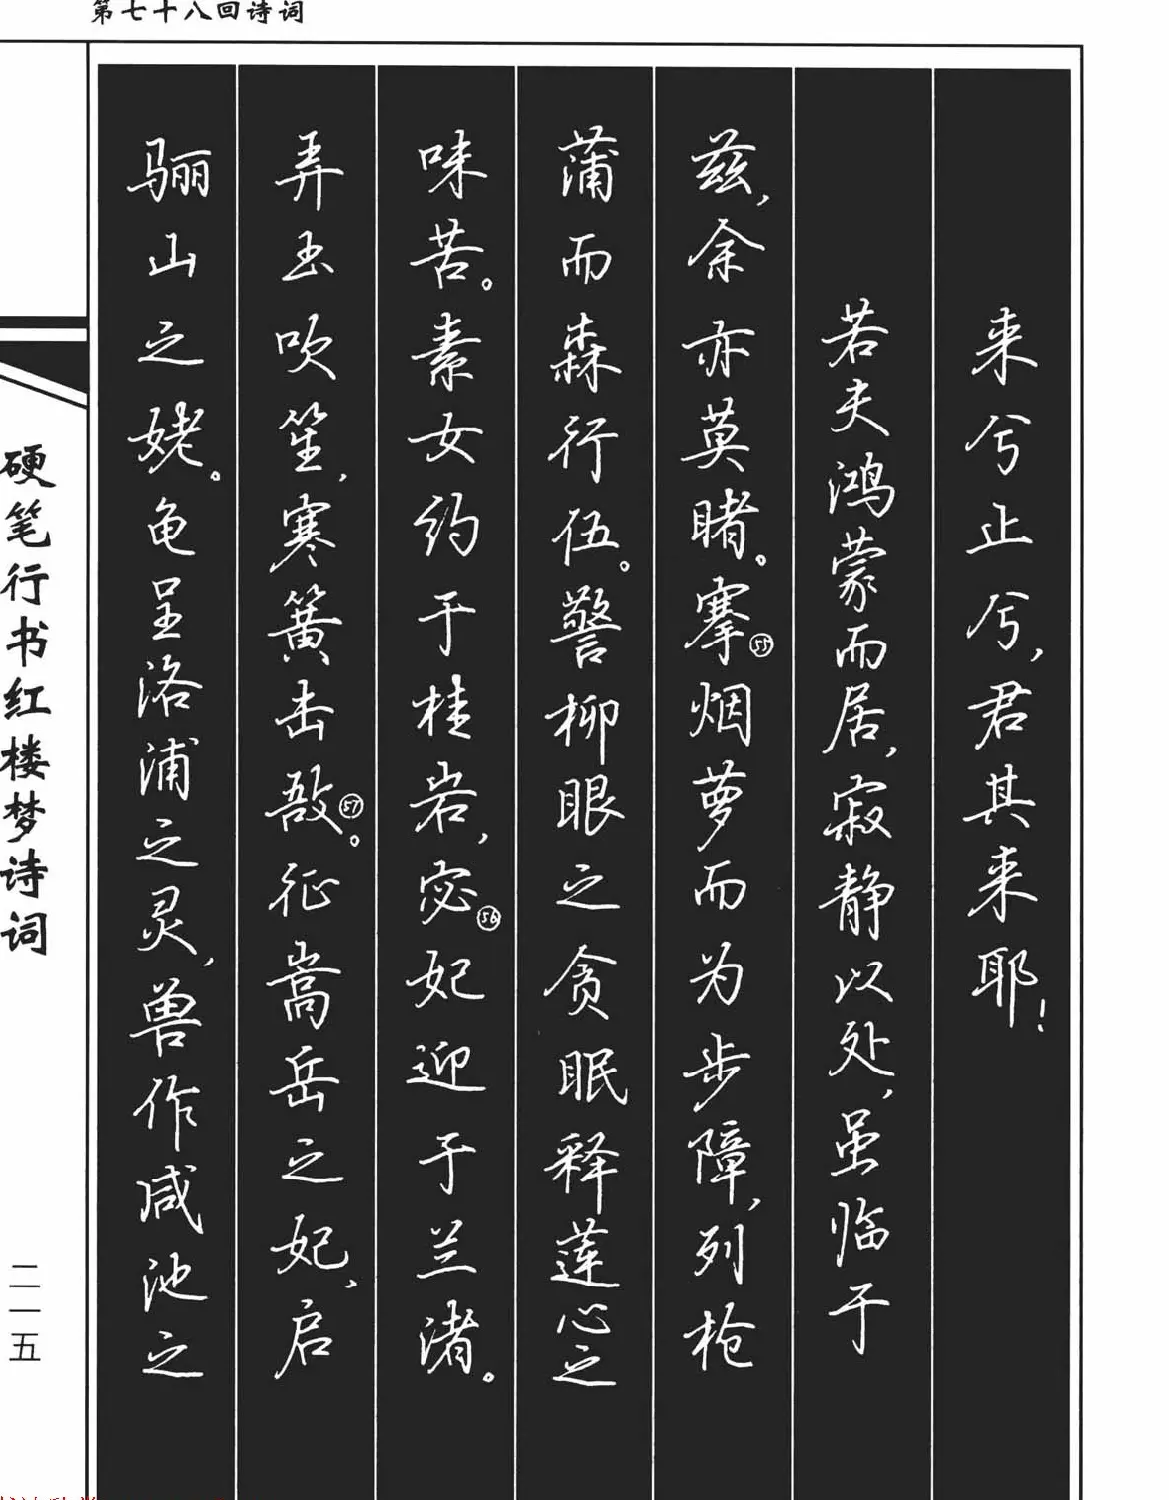 第七十八回诗词
来兮止兮，君其来耶！
若夫鸿蒙而居，寂静以处，虽临于
兹，余亦莫睹。搴㊺烟萝而为步障，列枪
蒲而森行伍。警柳眼之贪眠，释莲心之
味苦。素女约于桂岩，宓㊻妃迎于兰渚。
弄玉吹笙，寒簧击敔㊼。征嵩岳之妃，启
骊山之姥。龟呈洛浦之灵，兽作咸池之
硬笔行书红楼梦诗词
二一五